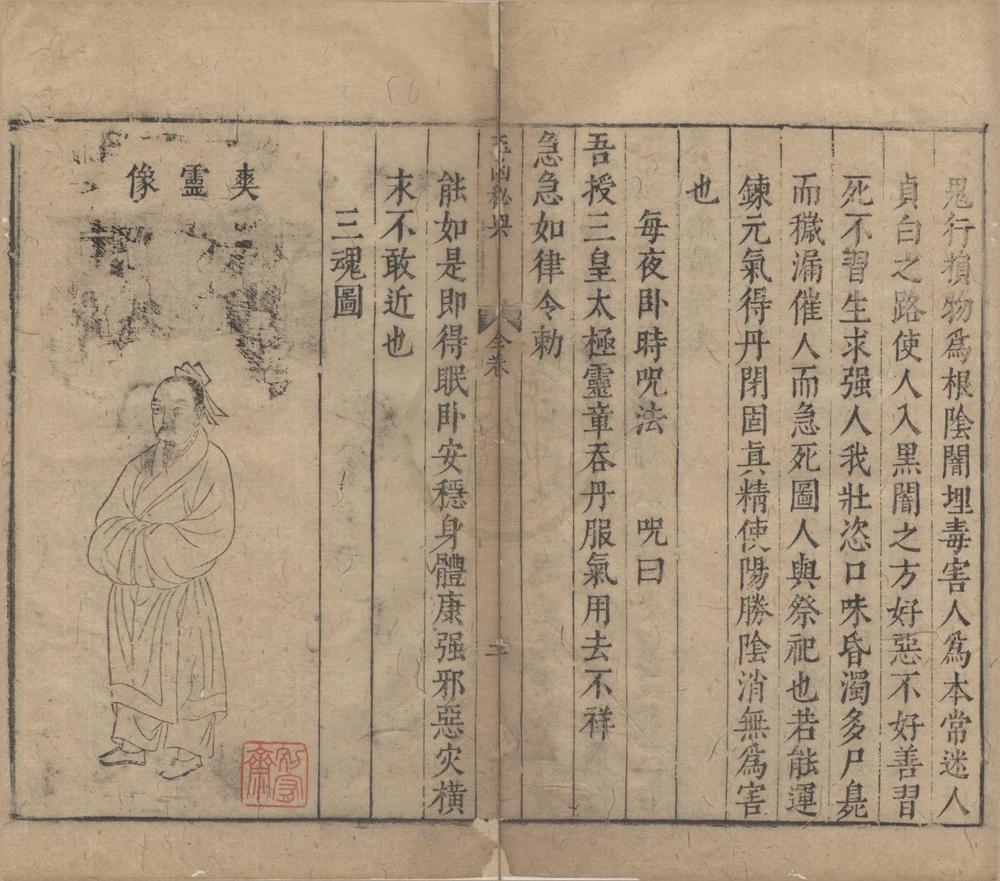 鬼行損物爲根陰闇埋毒害人爲本常迷人
貞白之路使人入黑闇之方好惡不好善習
死不習生求强人我壯恣口味昏濁多尸臰
而穢漏催人而急死圖人與祭祀也若能運
鍊元氣得丹閉固眞精使陽勝陰消無爲害
也
每夜卧時呪法　　呪曰
吾授三皇太極靈章吞丹服氣用去不祥
急急如律令勅
玉函秘典
全卷
能如是即得眠卧安穩身體康强邪惡灾橫
永不敢近也
三魂圖
爽靈像